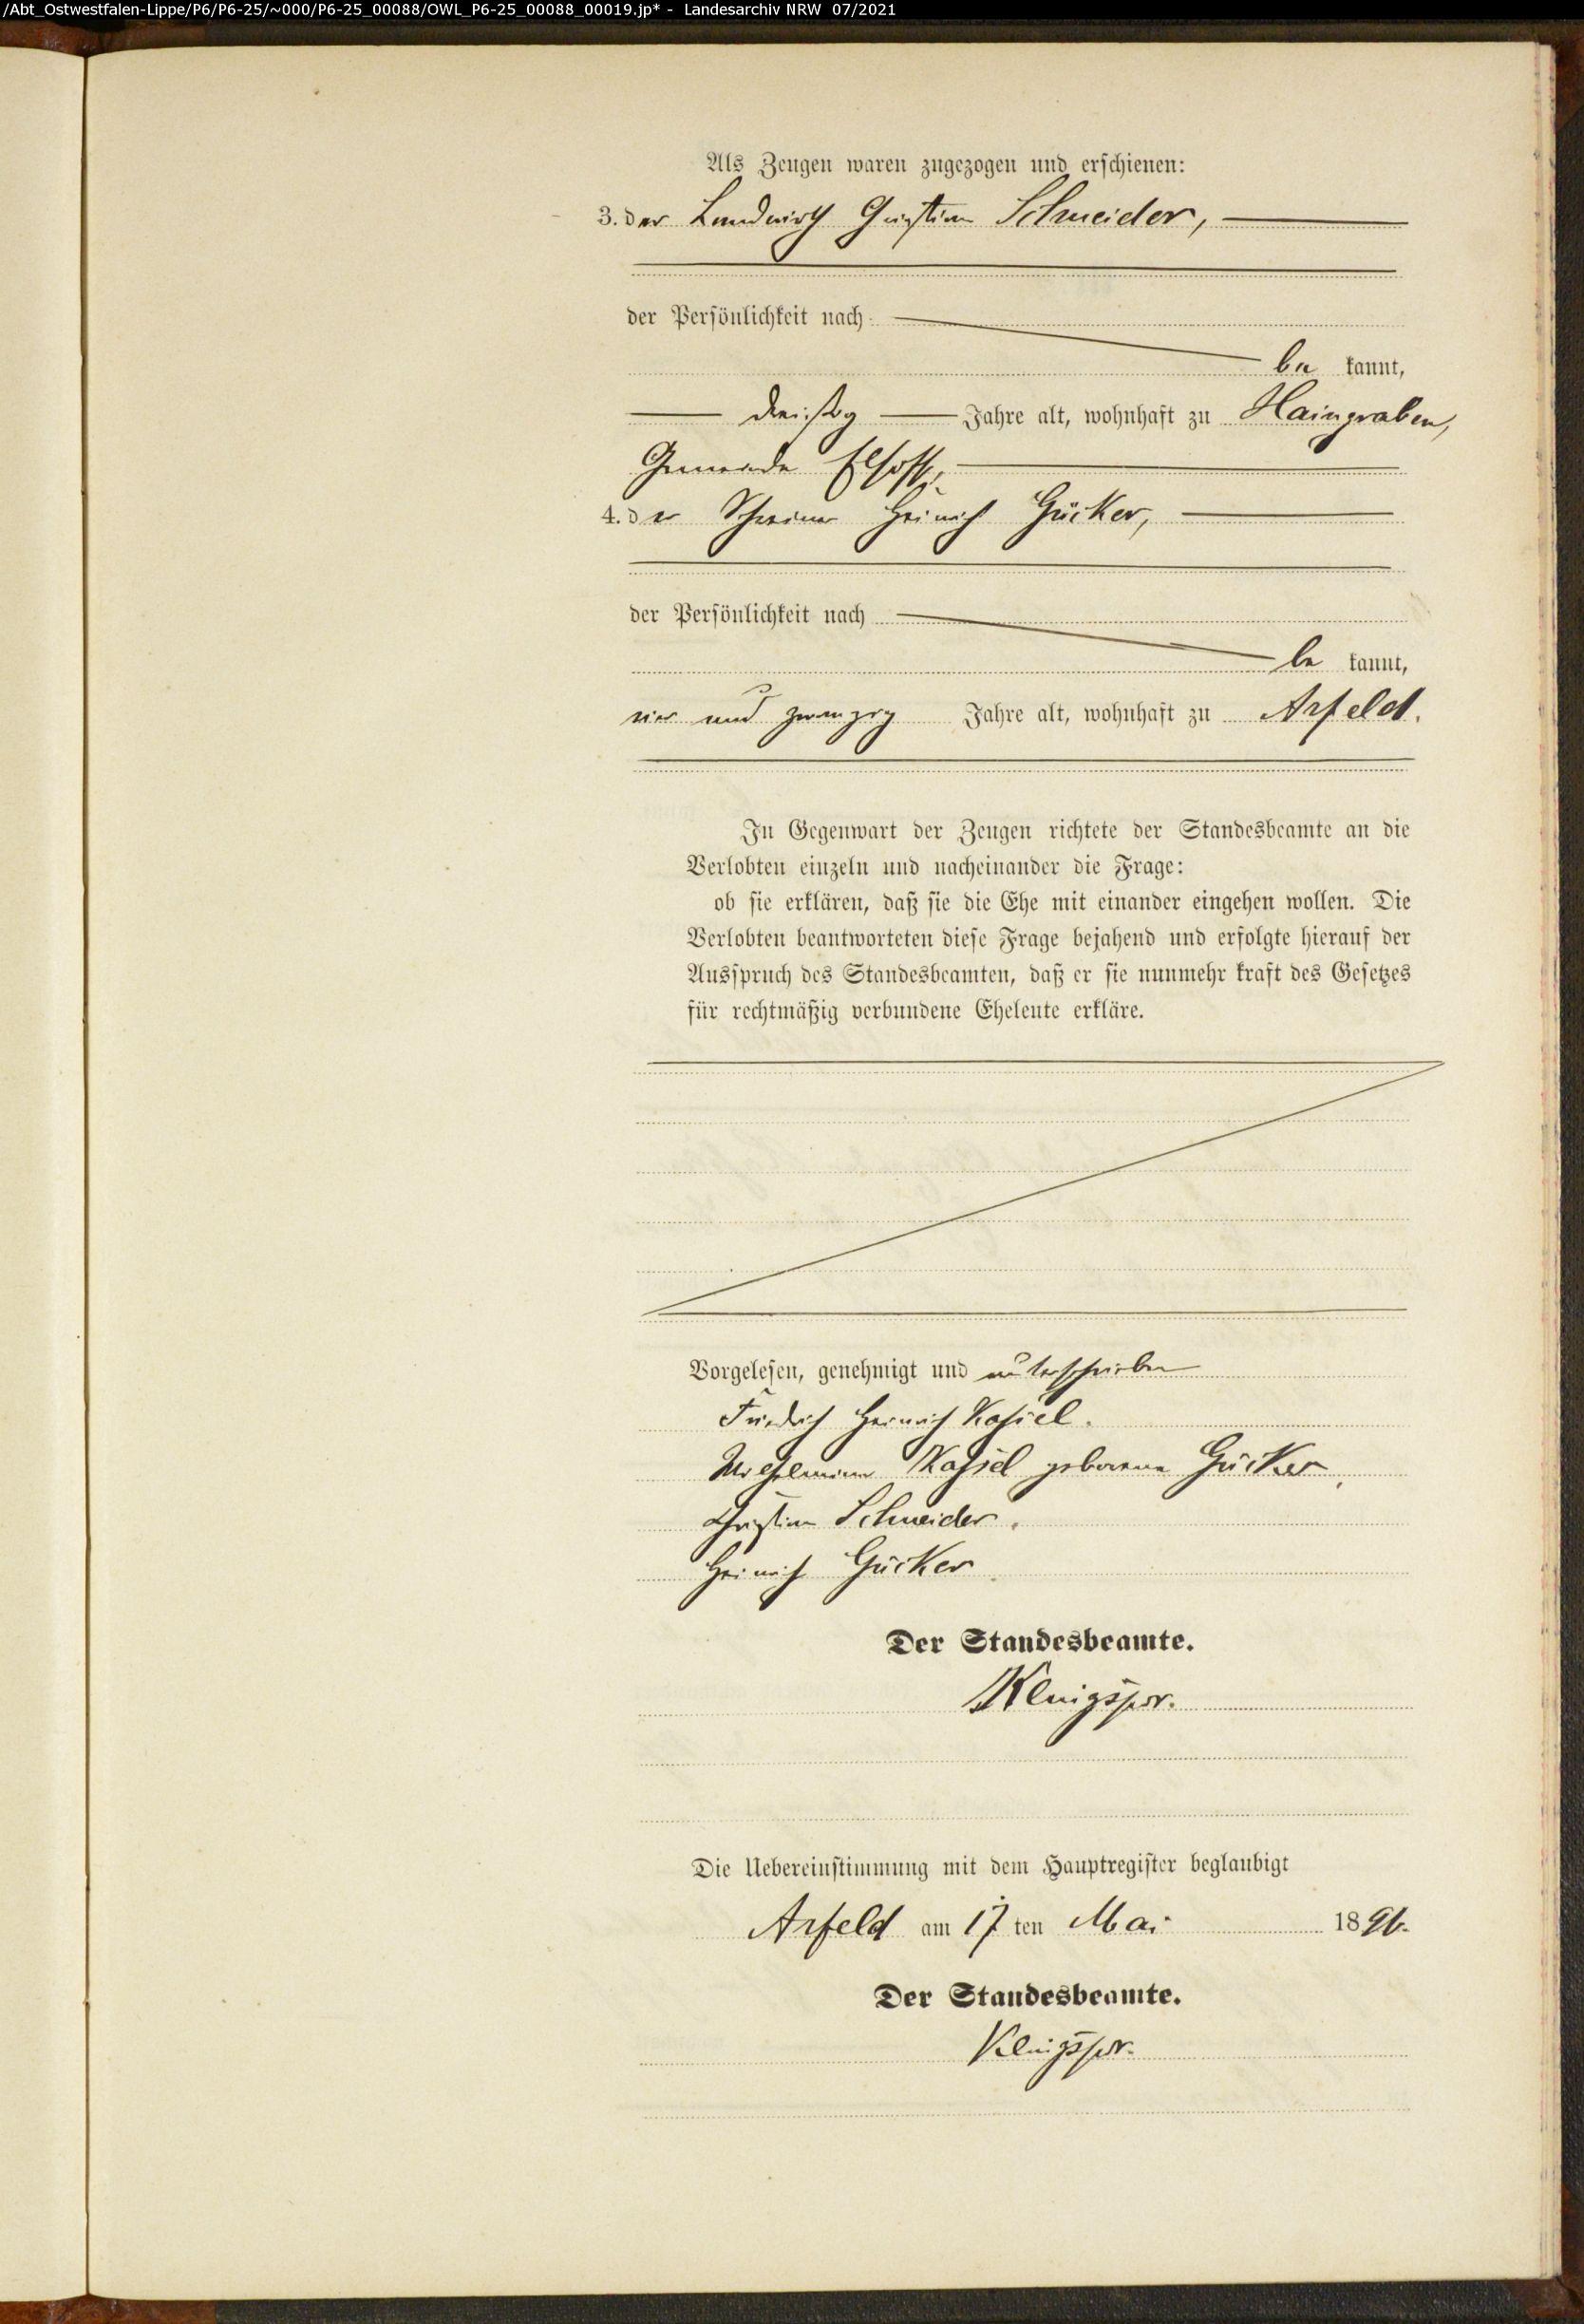 /Abt_Ostwestfalen-Lippe/P6/P6-25/~000/P6-25_00088/OWL_P6-25_00088_00019.jp* - Landesarchiv NRW 07/2021
Als Zeugen waren zugezogen und erschienen:
3. der Landwirth Christian Schneider,
der Persönlichkeit nach
be kannt,
dreißig Jahre alt, wohnhaft zu Haingraben,
Gemeinde Elsoff,
4. der Schreiner Heinrich Gücker,
der Persönlichkeit nach
be kannt,
vier und zwanzig Jahre alt, wohnhaft zu Arfeld.
In Gegenwart der Zeugen richtete der Standesbeamte an die
Verlobten einzeln und nacheinander die Frage:
ob sie erklären, daß sie die Ehe mit einander eingehen wollen. Die
Verlobten beantworteten diese Frage bejahend und erfolgte hierauf der
Ausspruch des Standesbeamten, daß er sie nunmehr kraft des Gesetzes
für rechtmäßig verbundene Eheleute erkläre.
Vorgelesen, genehmigt und unterschrieben
Friedrich Heinrich Kaßel.
Wilhelmine Kaßel geborene Gücker.
Christian Schneider.
Heinrich Gücker.
Der Standesbeamte.
Die Uebereinstimmung mit dem Hauptregister beglaubigt
Arfeld am 17 ten Mai 1896.
Der Standesbeamte.